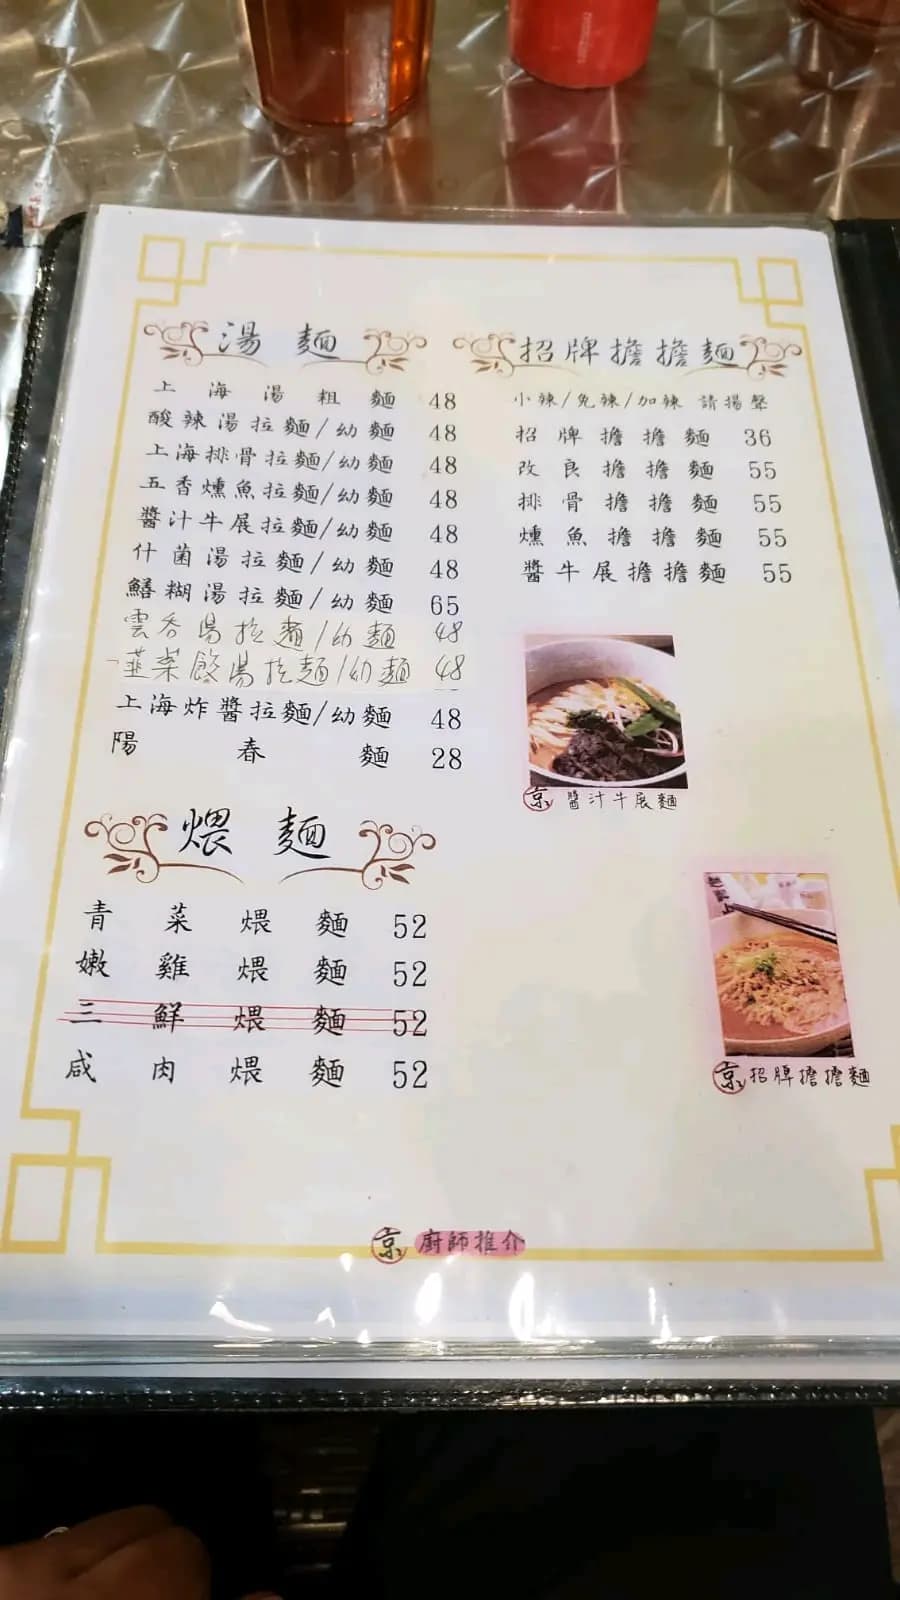 湯麵
上海湯粗麵 48
酸辣湯拉麵/幼麵 48
上海排骨拉麵/幼麵 48
五香燻魚拉麵/幼麵 48
醬汁牛展拉麵/幼麵 48
什菌湯拉麵/幼麵 48
鱔糊湯拉麵/幼麵 65
雲吞湯拉麵/幼麵 48
韮菜餃湯拉麵/幼麵 48
上海炸醬拉麵/幼麵 48
陽春麵 28
煨麵
青菜煨麵 52
嫩雞煨麵 52
三鮮煨麵 52
咸肉煨麵 52
招牌擔擔麵
小辣/免辣/加辣 請揚聲
招牌擔擔麵 36
改良擔擔麵 55
排骨擔擔麵 55
燻魚擔擔麵 55
醬牛展擔擔麵 55
京 醬汁牛展麵
京 招牌擔擔麵
京 廚師推介